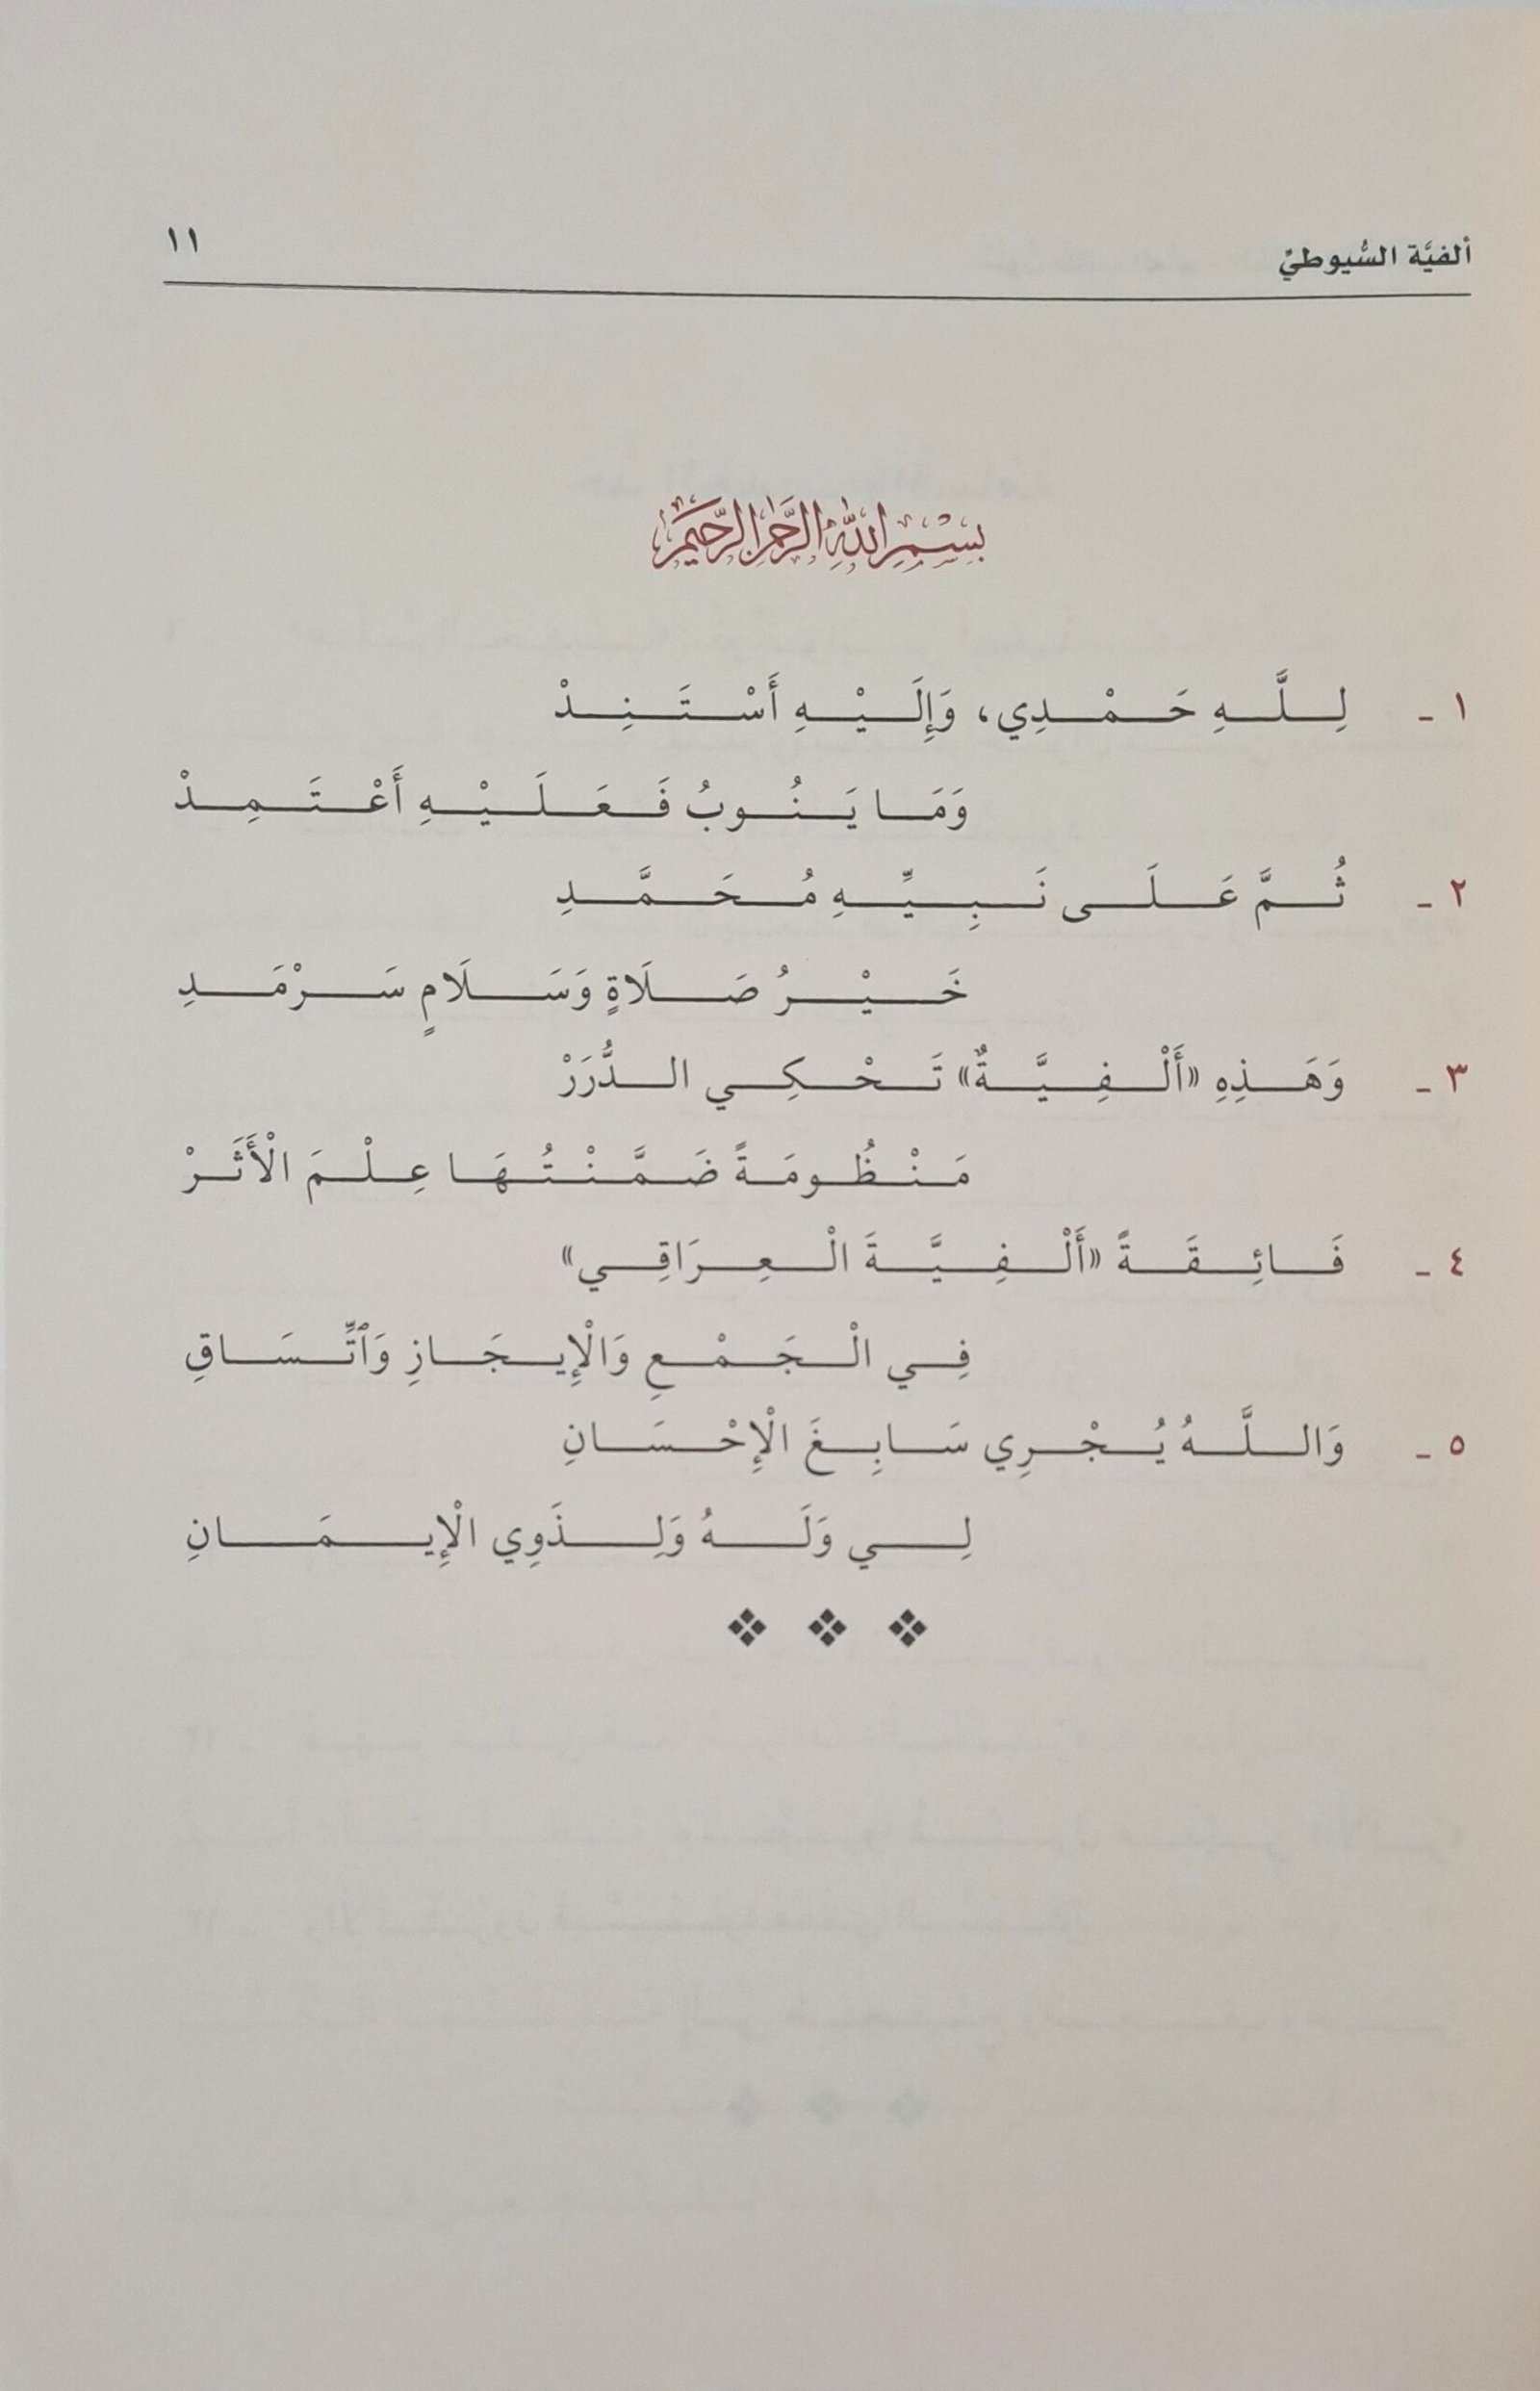 ألفيَّة السُّيوطيِّ ١١
بِسْمِ اللَّهِ الرَّحْمَنِ الرَّحِيمِ
١ - لِلَّهِ حَمْدِي، وَإِلَيْهِ أَسْتَنِدْ
وَمَا يَنُوبُ فَعَلَيْهِ أَعْتَمِدْ
٢ - ثُمَّ عَلَى نَبِيِّهِ مُحَمَّدِ
خَيْرُ صَلَاةٍ وَسَلَامٍ سَرْمَدِ
٣ - وَهَذِهِ «أَلْفِيَّةٌ» تَحْكِي الدُّرَرْ
مَنْظُومَةً ضَمَّنْتُهَا عِلْمَ الْأَثَرْ
٤ - فَائِقَةً «أَلْفِيَّةَ الْعِرَاقِي»
فِي الْجَمْعِ وَالْإِيجَازِ وَٱتِّسَاقِ
٥ - وَاللَّهُ يُجْرِي سَابِغَ الْإِحْسَانِ
لِي وَلَهُ وَلِذَوِي الْإِيمَانِ